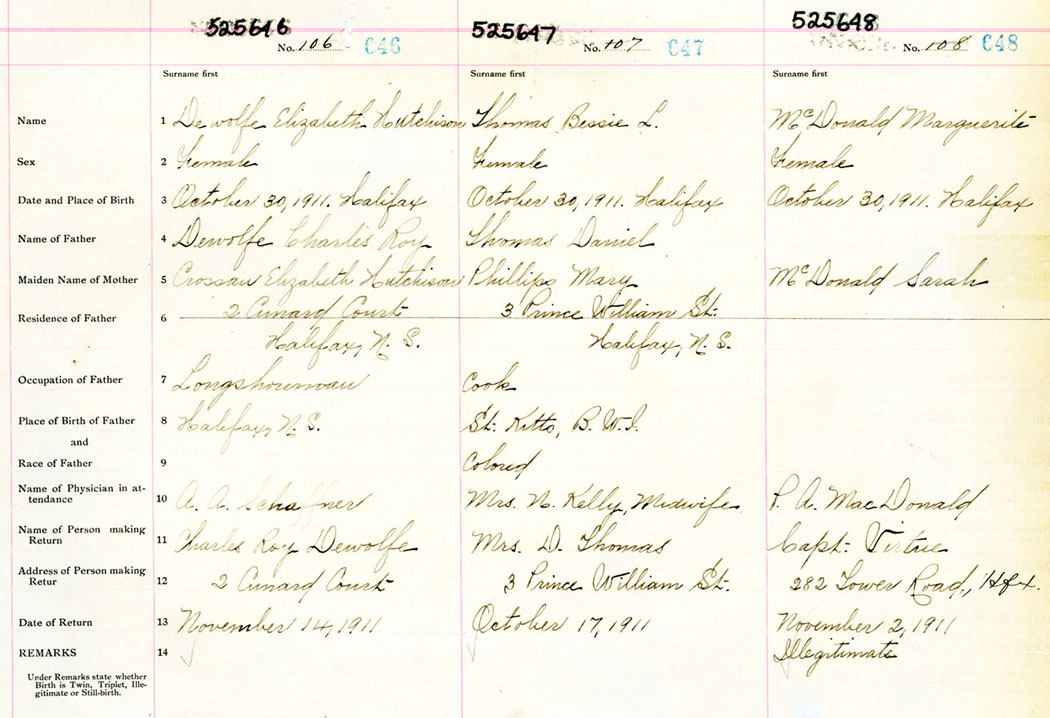 525646 525647 525648
No. 106 C46 No. 107 C47 No. 108 C48
Surname first Surname first Surname first
Name 1 Dewolfe Elizabeth Hutchison Thomas Bessie L. McDonald Marguerite
Sex 2 Female Female Female
Date and Place of Birth 3 October 30, 1911. Halifax October 30, 1911. Halifax October 30, 1911. Halifax
Name of Father 4 Dewolfe Charles Roy Thomas Daniel
Maiden Name of Mother 5 Crossan Elizabeth Hutchison Phillips Mary McDonald Sarah
Residence of Father 6 2 Cunard Court 3 Prince William St.
Halifax, N. S. Halifax, N. S.
Occupation of Father 7 Longshoreman Cook
Place of Birth of Father 8 Halifax, N. S. St. Kitts, B. W. I.
and
Race of Father 9 Colored
Name of Physician in at-
tendance 10 A. A. Schaffner Mrs. N. Kelly, Midwife P. A. MacDonald
Name of Person making
Return 11 Charles Roy Dewolfe Mrs. D. Thomas Capt. Virtue
Address of Person making
Retur 12 2 Cunard Court 3 Prince William St. 282 Tower Road, Hfx.
Date of Return 13 November 14, 1911 October 17, 1911 November 2, 1911
REMARKS 14 Illegitimate
Under Remarks state whether
Birth is Twin, Triplet, Ille-
gitimate or Still-birth.